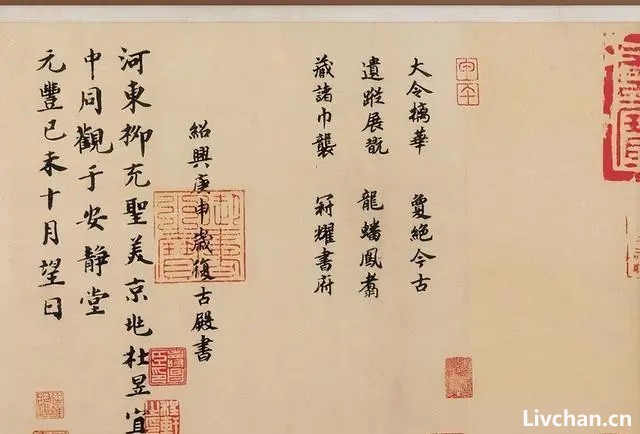 大令摛華 敻絕今古
遺蹤展翫 龍蟠鳳翥
藏諸巾襲 冠耀書府
紹興庚申歲復古殿書
河東柳充聖美京兆杜昱宜
中同觀于安靜堂
元豐己未十月望日
Livchan.cn